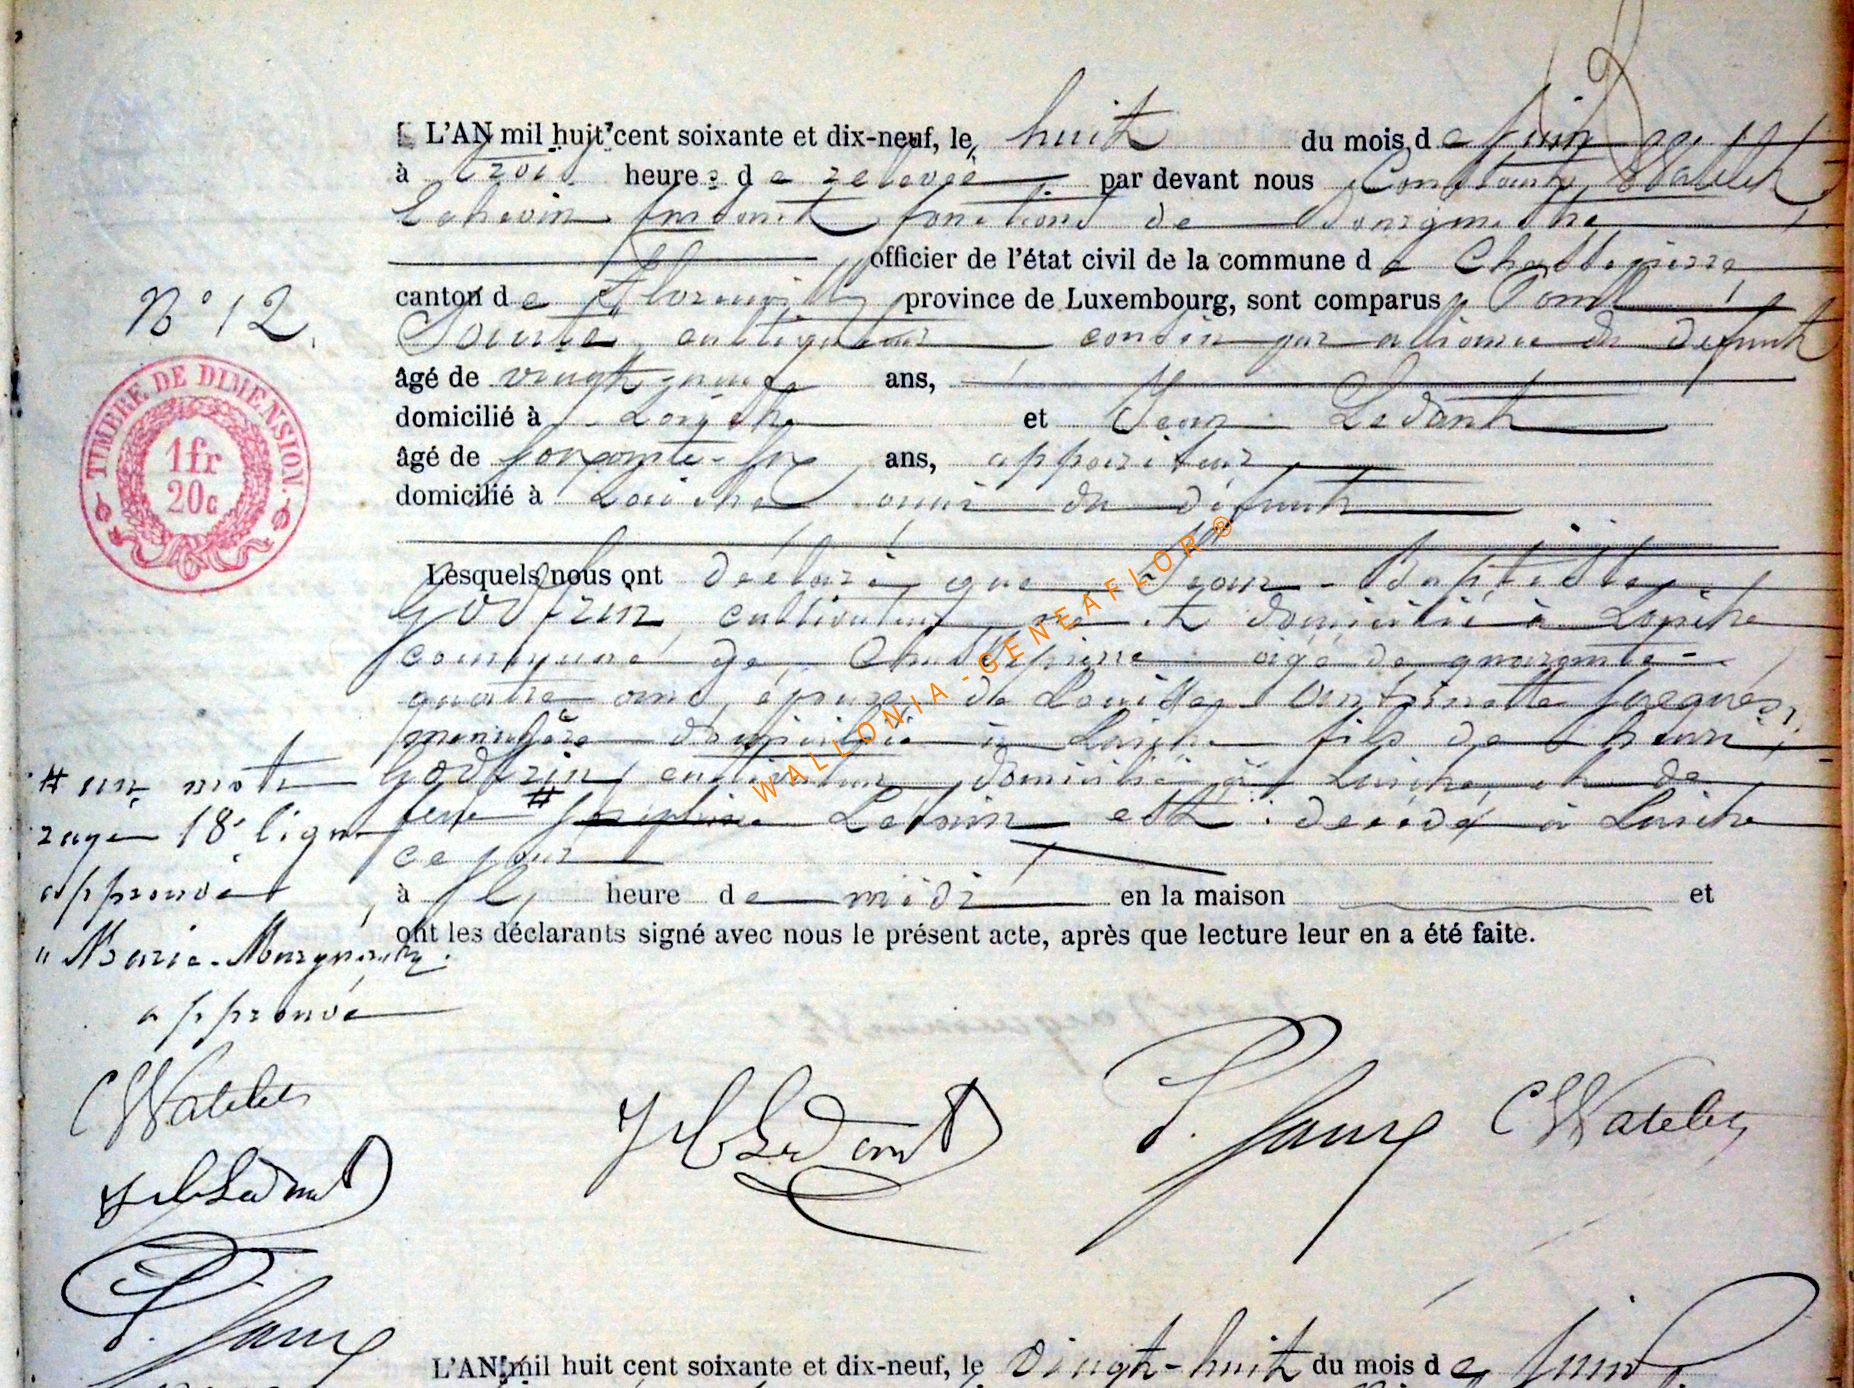 L'AN mil huit cent soixante et dix-neuf, le huit du mois de Juin
à trois heures de relevée par devant nous Constant Watelet
Echevin faisant fonctions de Bourgmestre
officier de l'état civil de la commune de Chassepierre
canton de Florenville province de Luxembourg, sont comparus
cultivateur cousin par alliance du défunt
âgé de vingt neuf ans,
domicilié à Laiche et Jean Ledant
âgé de soixante-six ans, appariteur
domicilié à Laiche ami du défunt
Lesquels nous ont déclaré que Jean-Baptiste
Godfrin, cultivateur, né et domicilié à Laiche
commune de Chassepierre âgé de quarante-
quatre ans, époux de Louise Antoinette Jacques,
ménagère domiciliée à Laiche fils de Henri
Godfrin, cultivateur, domicilié à Laiche, et de
feue # Lebrun est décédé à Laiche
ce jour
à heure de midi en la maison et
ont les déclarants signé avec nous le présent acte, après que lecture leur en a été faite.
N° 12.
TIMBRE DE DIMENSION
1fr
20c
# un mot
rayé 18e ligne
approuvé
" Marie-Marguerite
approuvé
C Watelet
Ledant
JB Ledant
C Watelet
WALLONIA-GENEAFLOR®
L'AN mil huit cent soixante et dix-neuf, le vingt-huit du mois de Juin